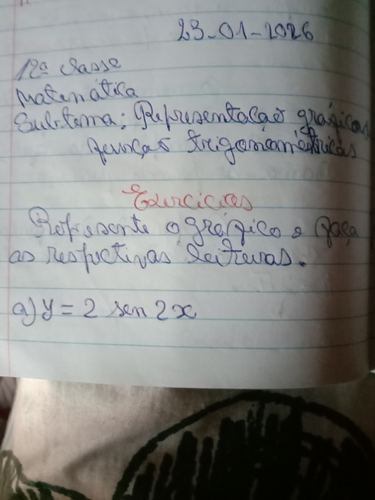 23-01-2026
12ª classe
Matemática
Subtema: Representação gráficas
função trigonométricas
Exercícios
Represente o gráfico e faça
as respectivas leituras.
a) y = 2 sen 2x